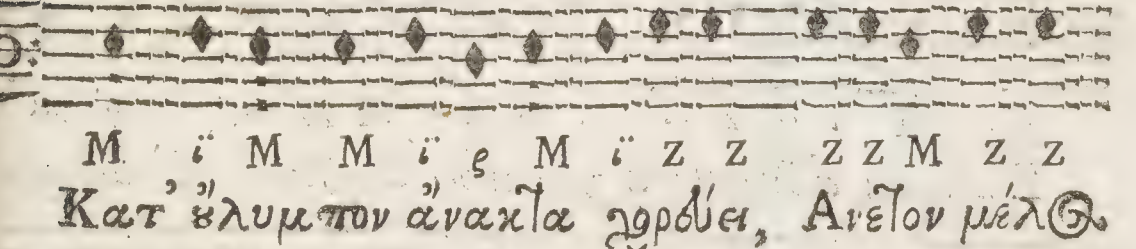 M ϊ M M ϊ ρ M ϊ Z Z Z Z M Z Z
Κατ' ὄλυμπον ἄνακτα χορεύει, Ανετον μέλος